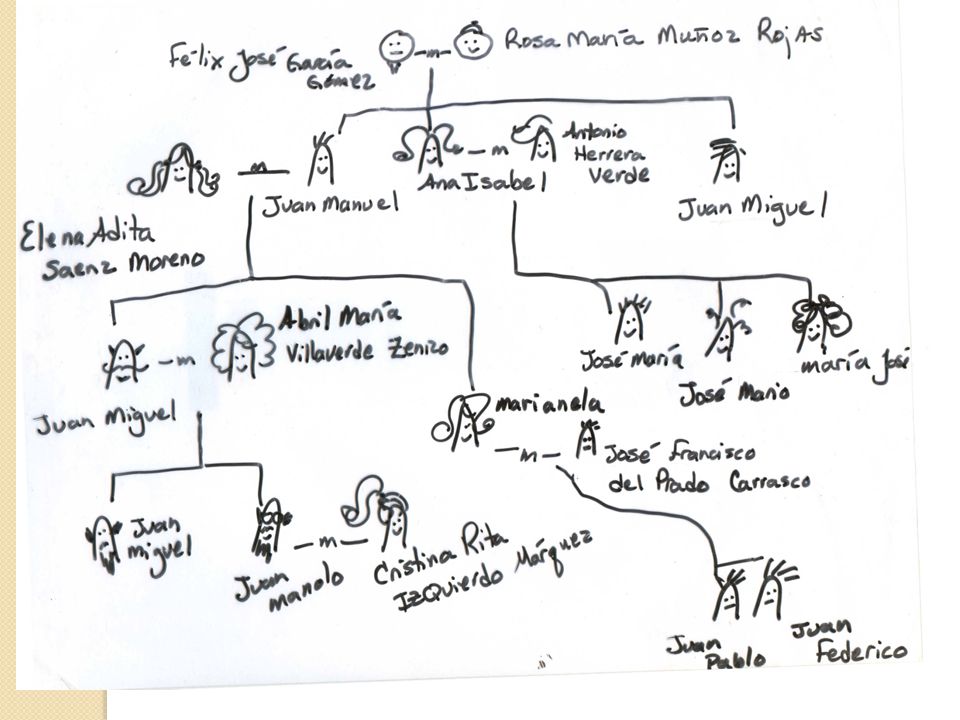 Félix José García
Gómez
m
Rosa María Muñoz Rojas
m
Juan Manuel
Ana Isabel
m
Antonio
Herrera
Verde
Juan Miguel
Elena Adita
Saenz Moreno
Juan Miguel
m
Abril María
Villaverde Zenizo
José María
José Mario
maría José
marianela
m
José Francisco
del Prado Carrasco
Juan
miguel
Juan
manolo
m
Cristina Rita
IzQuierdo Márquez
Juan
Pablo
Juan
Federico